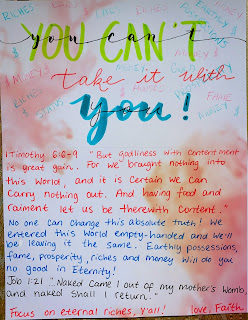 RICHES CARS EARTHLY
YOU CAN'T
you can't
take it with
you!
MONEY
1 Timothy 6:6-9 "But godliness with contentment
is great gain. For we brought nothing into
this world, and it is certain we can
Carry nothing out. And having food and
raiment let us be therewith content."
No one can change this absolute truth! We
entered this world empty-handed and we'll
be leaving it the same. Earthly possessions,
fame, prosperity, riches and money will do you
no good in Eternity!
Job 1:21 "Naked came I out of my mother's womb,
and naked shall I return."
Focus on eternal riches, Y'all! love, Faith